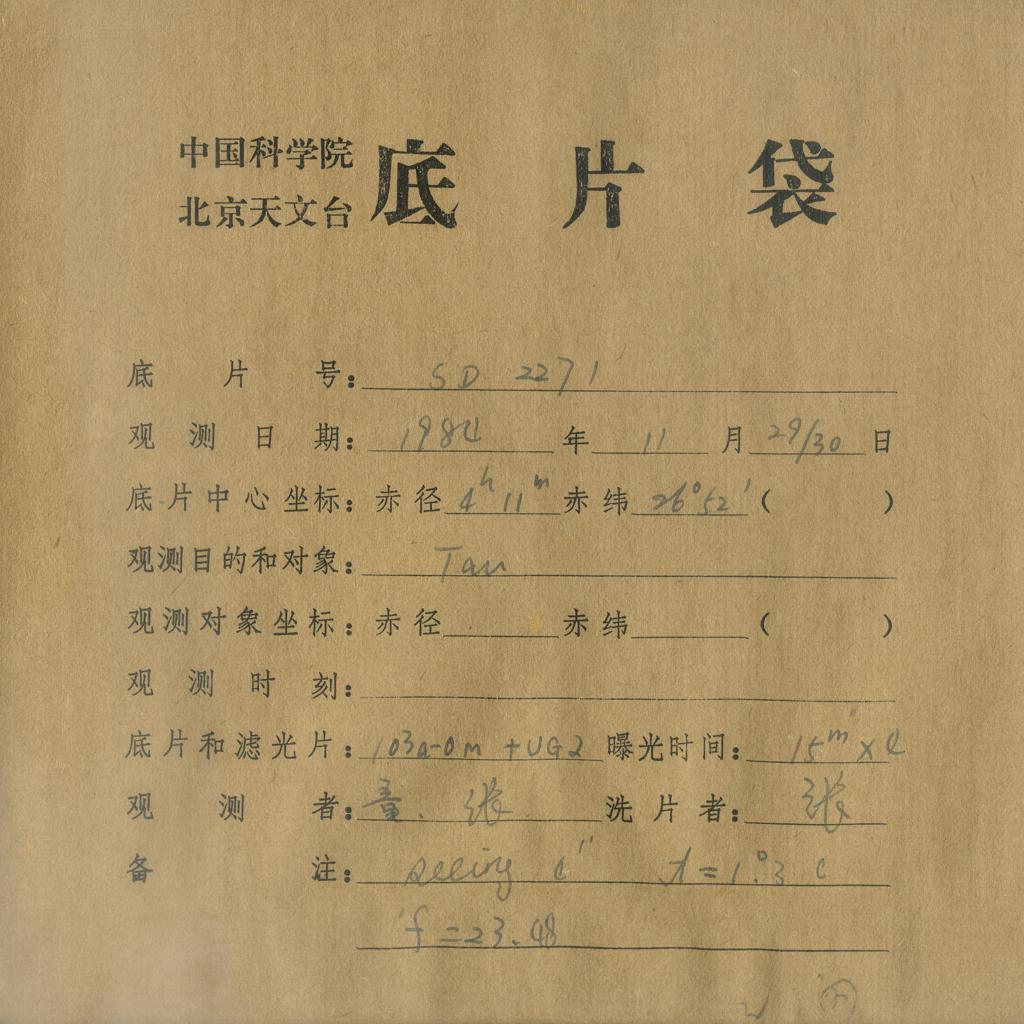 中国科学院
北京天文台
底片袋
底片号：SD 2271
观测日期：1984年11月29/30日
底片中心坐标：赤径4ʰ11ᵐ赤纬26°52′（ ）
观测目的和对象：Tau
观测对象坐标：赤径 赤纬 （ ）
观测时刻：
底片和滤光片：103a-0m+UG2 曝光时间：15ᵐ×4
观测者：童.张 洗片者：张
备注：seeing 4″ t=1°.3 C
f=23.48